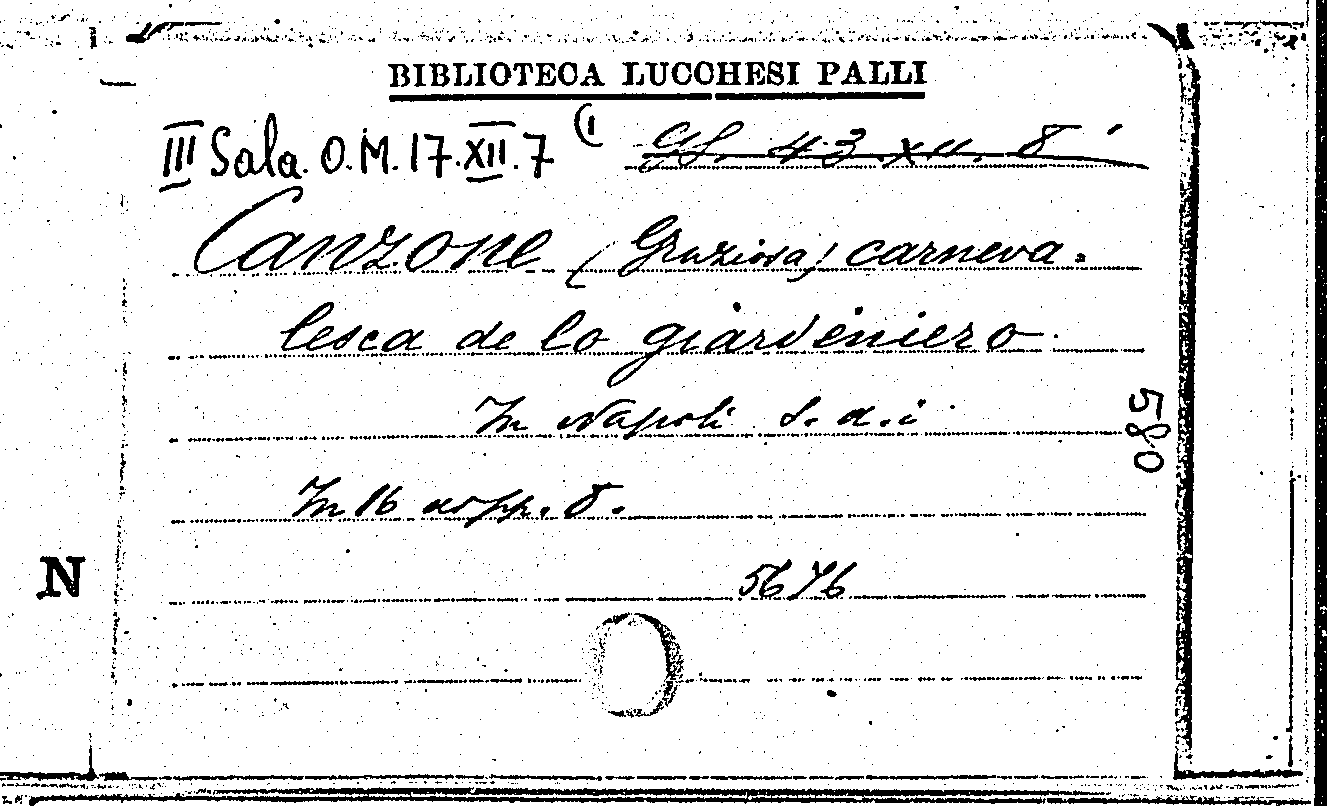 BIBLIOTECA LUCCHESI PALLI
III Sala. O.M. 17. XII. 7 (1 43 XII. 8
Canzone (Graziosa) carneva-
lesca de lo giardeniero.
In Napoli S. d. i
In 16 pp. 8.
5676
580
N